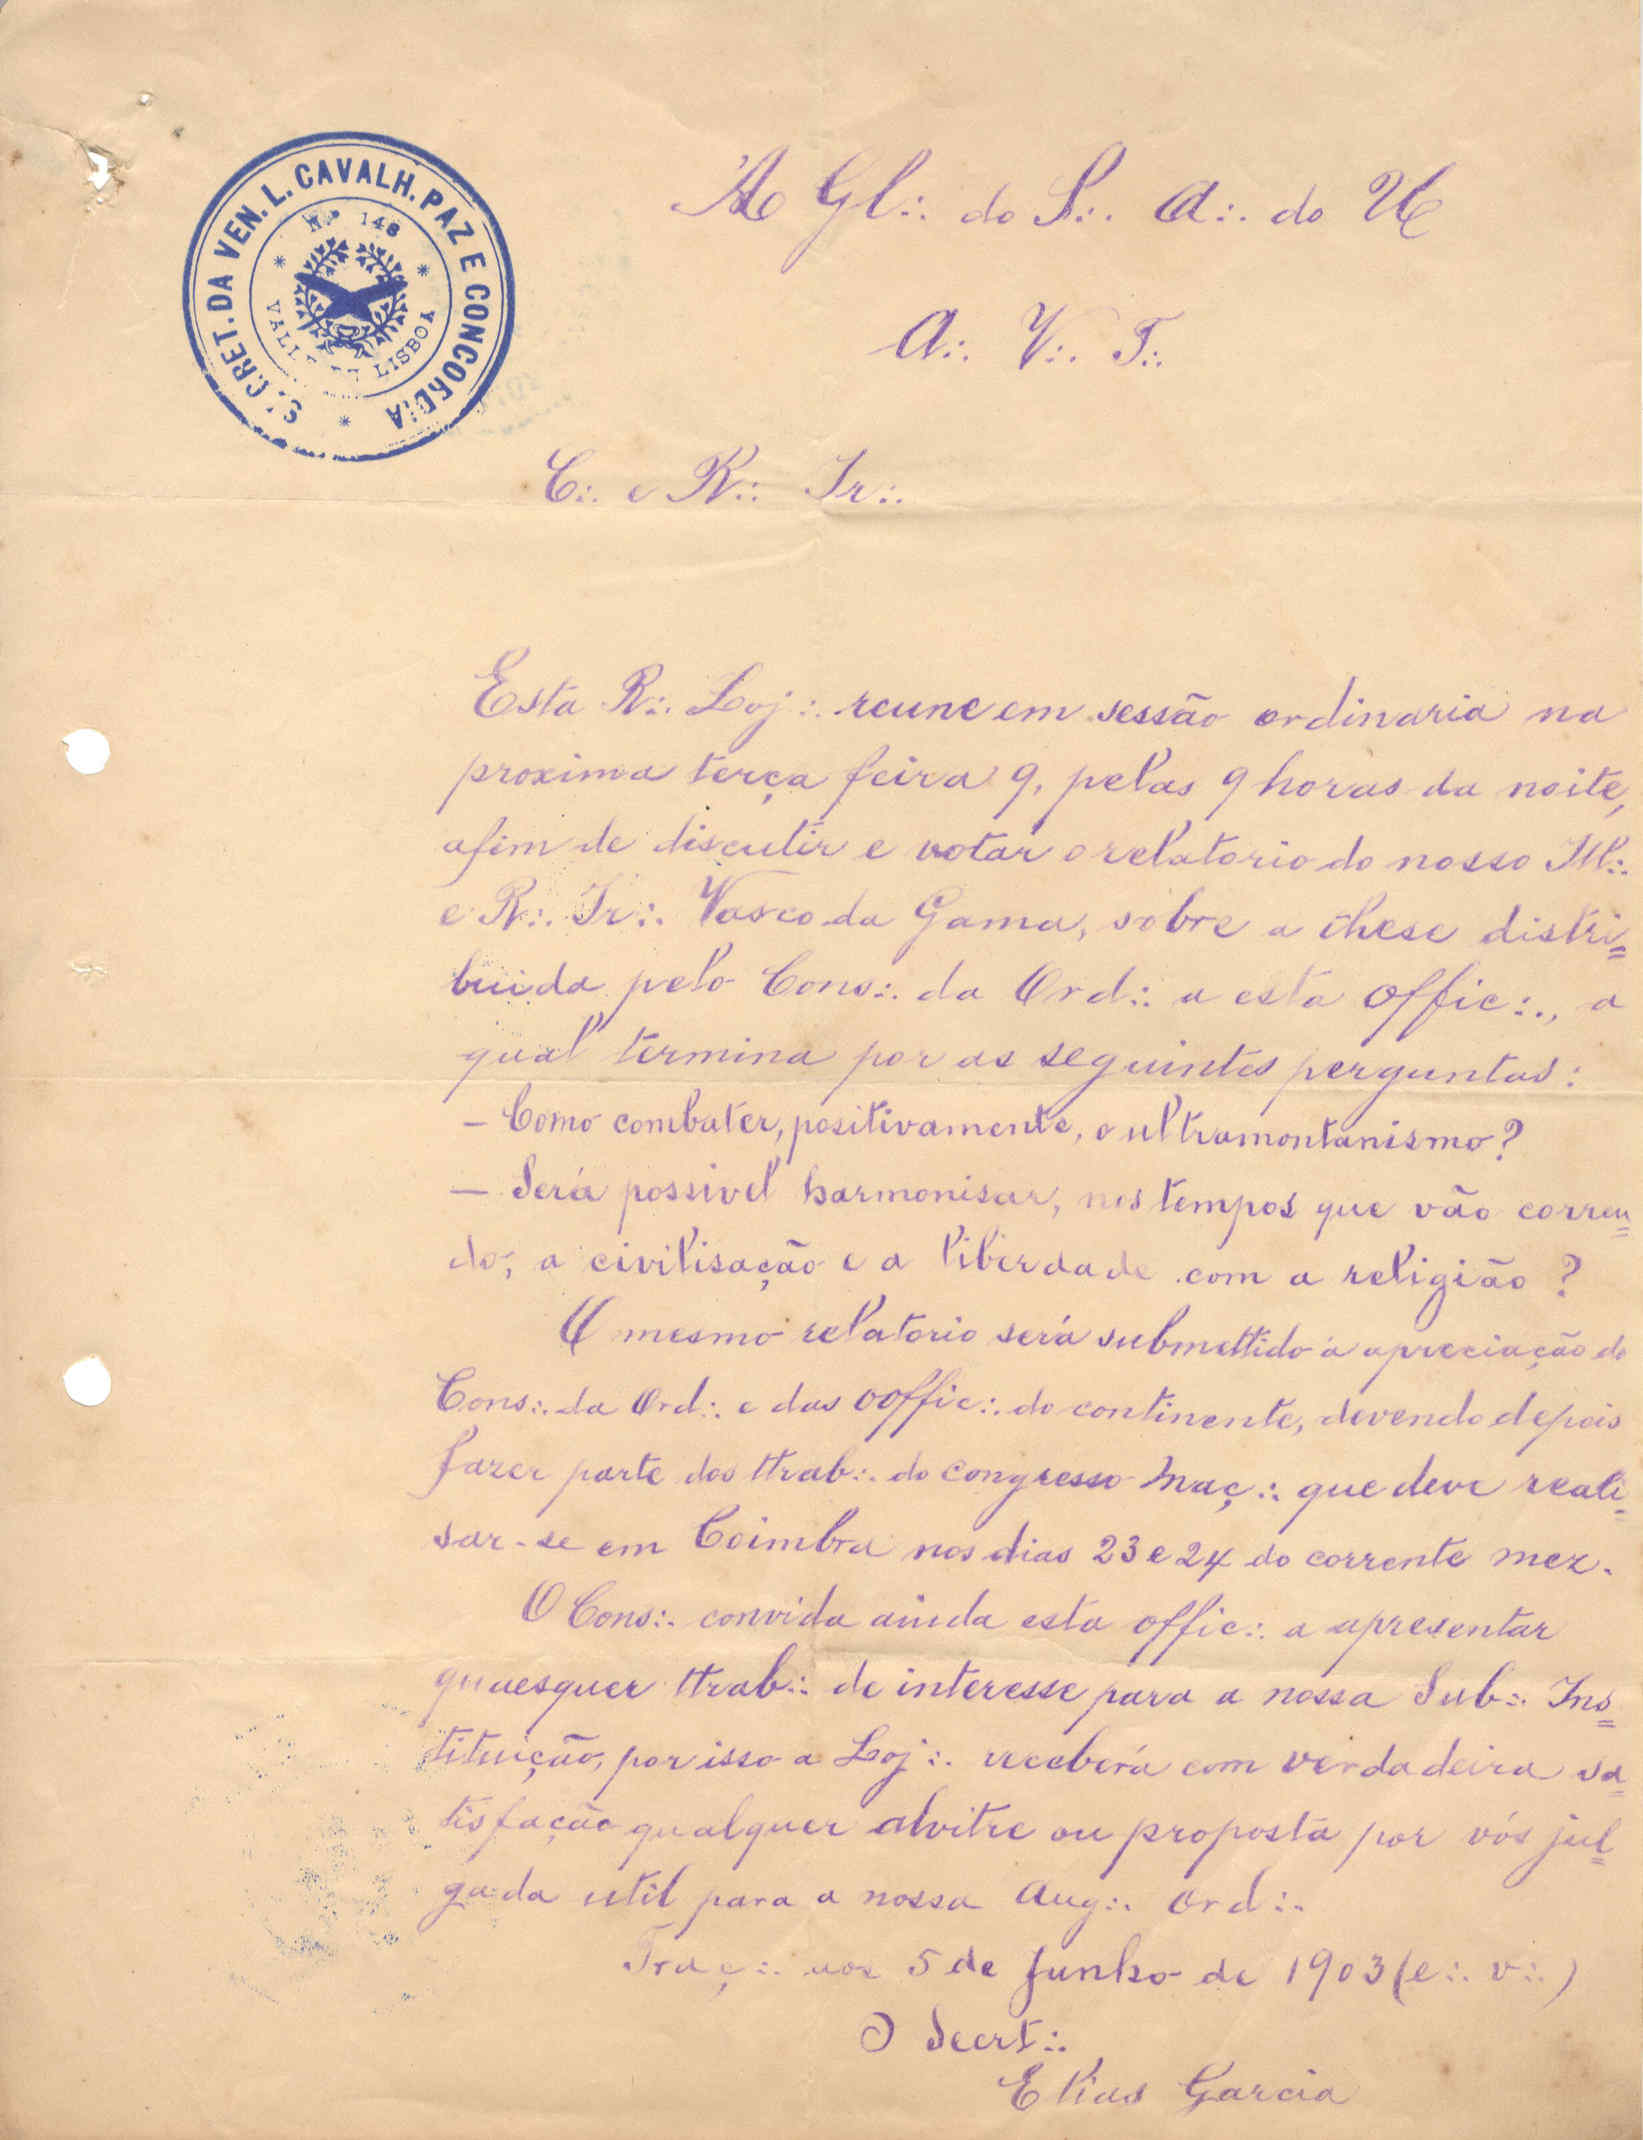 S.CRET. DA VEN. L. CAVALH. PAZ E CONCORDIA
Nº 148
VALLE DE LISBOA
A Gl∴ do S∴ A∴ do U
A∴ V∴ T∴
C∴ e R∴ Ir∴
Esta R∴ Loj∴ reune em sessão ordinaria na
proxima terça feira 9, pelas 9 horas da noite,
afim de discutir e votar o relatorio do nosso Il∴
e R∴ Ir∴ Vasco da Gama, sobre a these distri=
buida pelo Cons∴ da Ord∴ a esta Offic∴, a
qual termina por as seguintes perguntas:
– Como combater, positivamente, o ultramontanismo?
– Será possivel harmonisar, nos tempos que vão corren=
do, a civilisação e a liberdade com a religião?
O mesmo relatorio será submettido á apreciação do
Cons∴ da Ord∴ e das Ooffic∴ do continente, devendo depois
fazer parte dos ttrab∴ do congresso maç∴ que deve reali=
sar-se em Coimbra nos dias 23 e 24 do corrente mez.
O Cons∴ convida ainda esta offic∴ a apresentar
quaesquer ttrab∴ de interesse para a nossa Sub∴ Ins=
tituição, por isso a Loj∴ receberá com verdadeira sa=
tisfação qualquer alvitre ou proposta por vós jul=
gada util para a nossa Aug∴ Ord∴
Traç∴ aos 5 de Junho de 1903 (e∴ v∴)
O Secrt∴
Elias Garcia